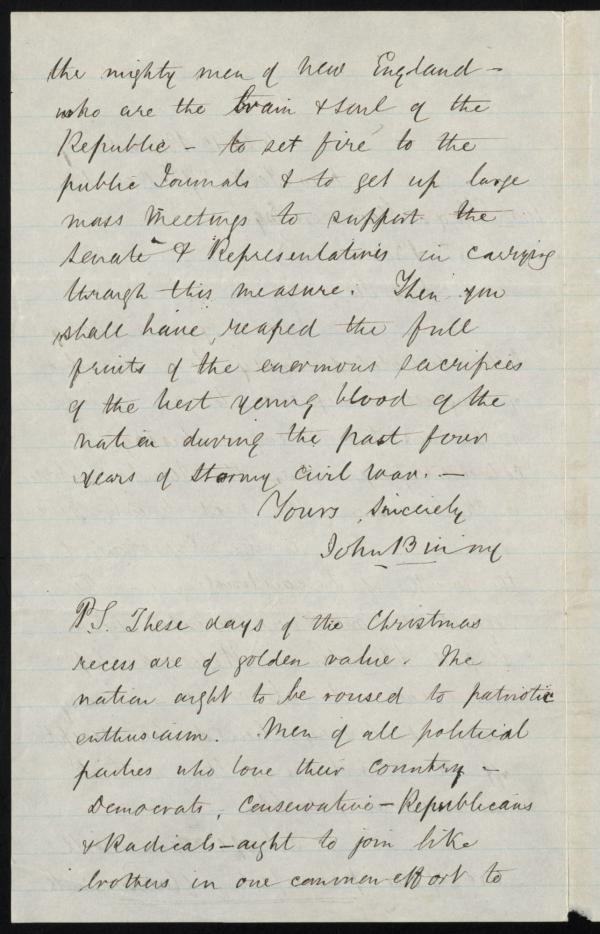 the mighty men of New England -
who are the brain & soul of the
Republic - to set fire to the
public Journals & to get up large
mass meetings to support the
Senate & Representatives in carrying
through this measure. Then you
shall have reaped the full
fruits of the enormous sacrifices
of the best young blood of the
nation during the past four
years of stormy civil war. -
Yours Sincerely
John Binny
P.S. These days of the Christmas
recess are of golden value. The
nation ought to be roused to patriotic
enthusiasm. Men of all political
parties who love their country -
Democrats, Conservative - Republicans
& Radicals - ought to join like
brothers in one common effort to